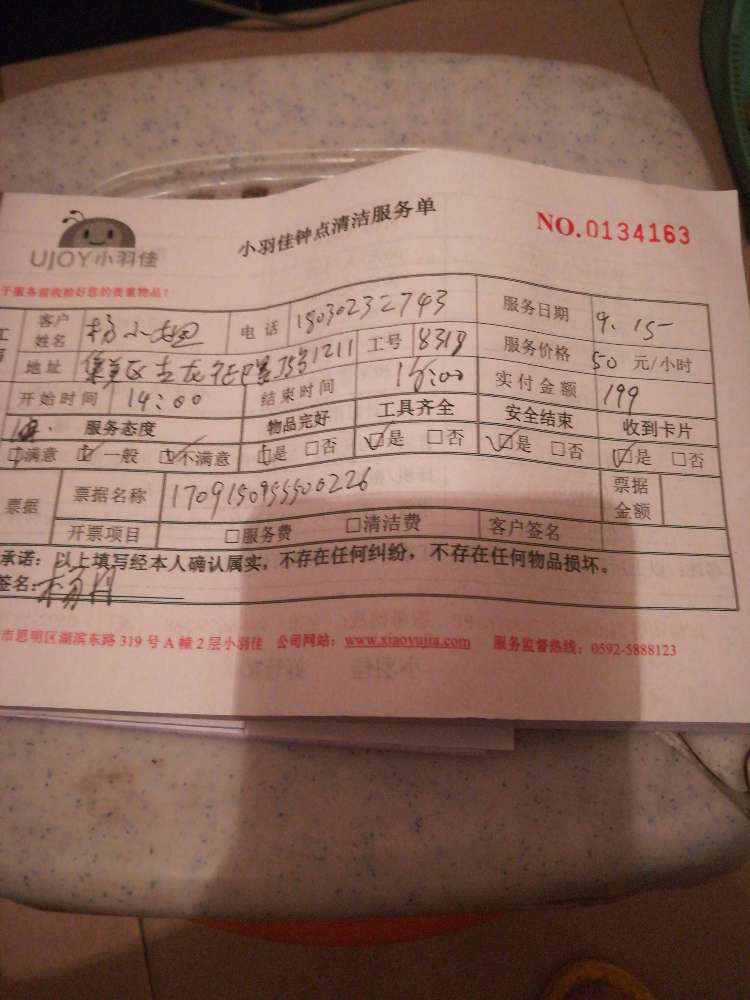 小羽佳钟点清洁服务单
NO.0134163
UJOY小羽佳
于服务前收拾好您的贵重物品！
客户姓名 杨小姐 电话 18030232743 服务日期 9.15
地址 集美区 75号1211 工号 8318 服务价格 50 元/小时
开始时间 14:00 结束时间 18:00 实付金额 199
服务态度 物品完好 工具齐全 安全结束 收到卡片
□满意 □一般 □不满意 □是 □否 □是 □否 □是 □否 □是 □否
票据 票据名称 1709150955500226 票据金额
开票项目 □服务费 □清洁费 客户签名
承诺：以上填写经本人确认属实，不存在任何纠纷，不存在任何物品损坏。
签名：
市思明区湖滨东路319号A幢2层小羽佳 公司网站：www.xiaoyujia.com 服务监督热线：0592-5888123